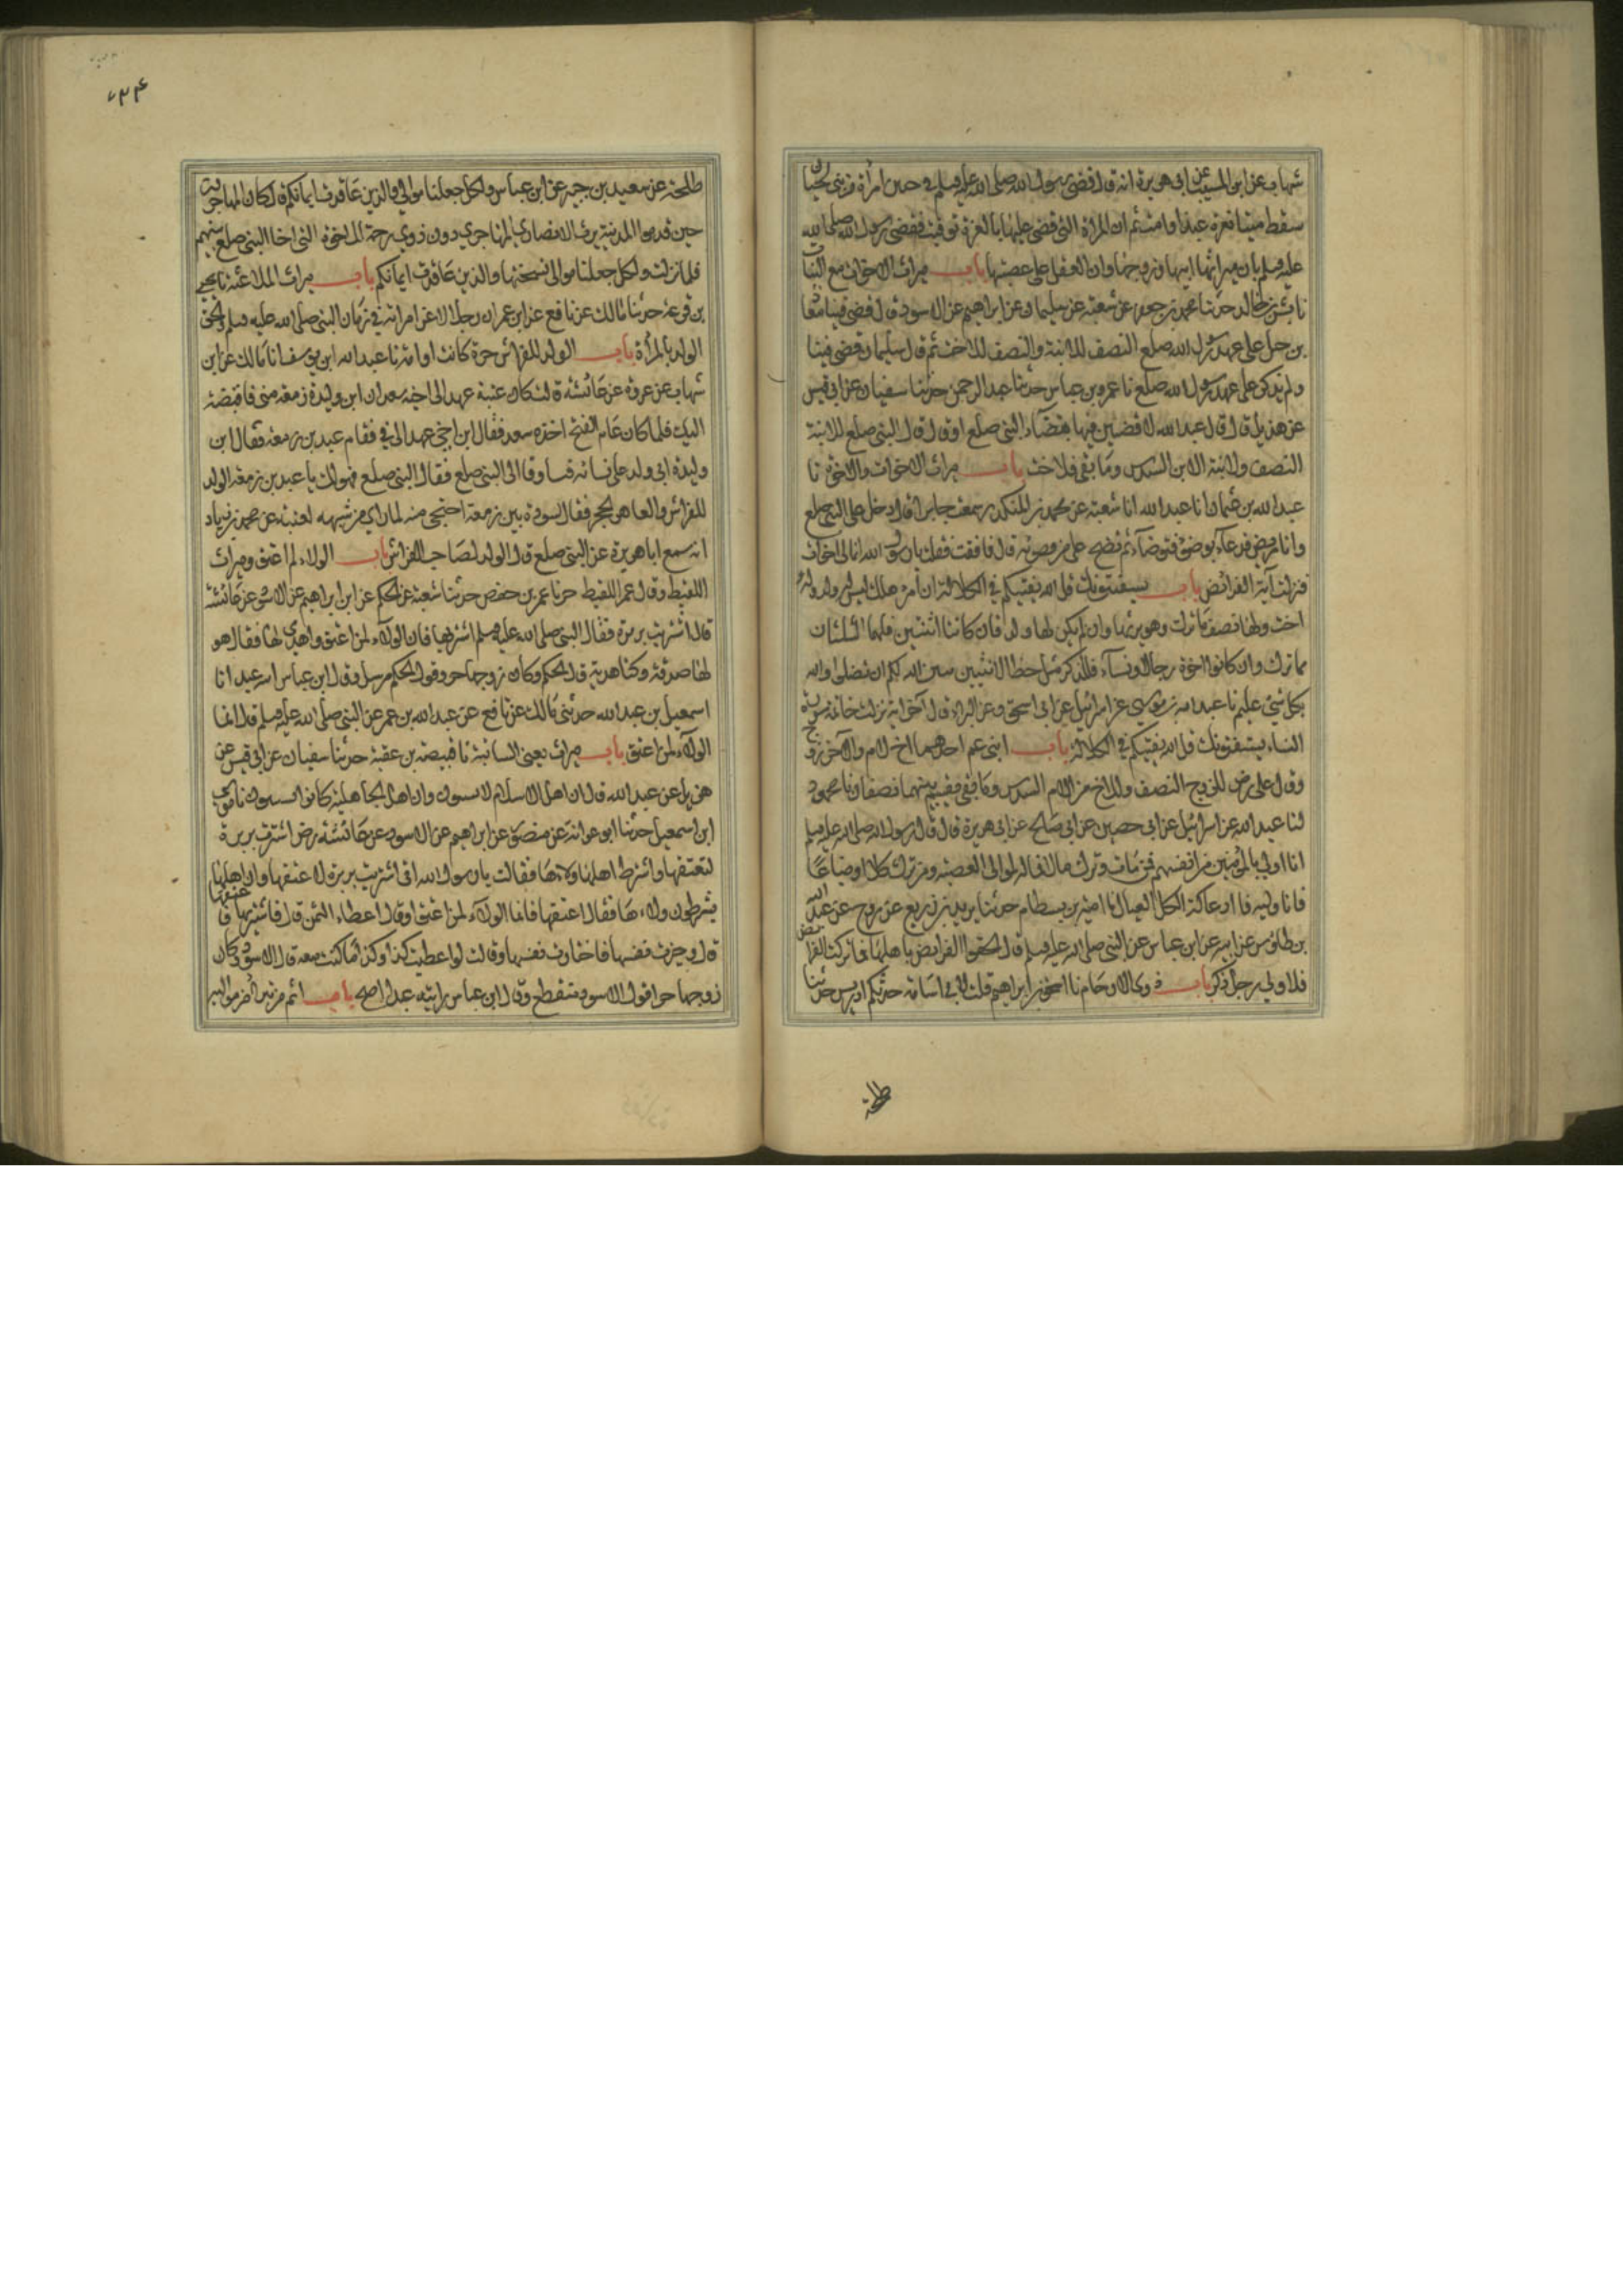 شهاب عن ابن المسيب عن ابي هريرة انه قال قضى رسول الله صلى الله عليه وسلم في جنين امرأة من بني لحيان
سقط ميتا بغرة عبد او امة ثم ان المرأة التي قضى عليها بالغرة توفيت فقضى رسول الله صلى الله
عليه وسلم بان ميراثها لبنيها وزوجها وان العقل على عصبتها باب ميراث الاخوات مع البنات
نا بشر بن خالد حدثنا محمد بن جعفر عن شعبة عن سليمان عن ابراهيم عن الاسود قال قضى فينا معاذ
بن جبل على عهد رسول الله صلعم النصف للابنة والنصف للاخت ثم قال سليمان قضى فينا
ولم يذكر على عهد رسول الله صلعم نا عمرو بن عباس حدثنا عبد الرحمن حدثنا سفيان عن ابي قيس
عن هذيل قال قال عبد الله لاقضين فيها بقضآء النبي صلعم او قال قال النبي صلعم للابنة
النصف ولابنة الابن السدس وما بقى فلاخت باب ميراث الاخوات والاخوة نا
عبد الله بن عثمان انا عبد الله انا شعبة عن محمد بن المنكدر سمعت جابرا قال دخل على النبي صلعم
وانا مريض فدعا بوضوء فتوضآء ثم نضح على من وضوئه قال فافقت فقلت يا رسول الله انما لي اخوات
فنزلت آية الفرائض باب يستفتونك قل الله يفتيكم في الكلالة ان امرؤ هلك ليس له ولد وله
اخت ولها نصف ما ترك وهو يرثها وان لم يكن لها ولد فان كانتا اثنتين فلهما الثلثان
مما ترك وان كانوا اخوة رجالا ونسآء فللذكر مثل حظ الانثيين يبين الله لكم ان تضلوا والله
بكل شيء عليم نا عبد الله بن موسى عن اسرائيل عن ابي اسحق عن البراء قال آخر آية نزلت خاتمة سورة
النساء يستفتونك قل الله يفتيكم في الكلالة باب ابنى عم احدهما اخ لام والآخر زوج
وقال على رض للزوج النصف وللاخ من الام السدس وما بقى بينهما نصفان نا محمود
لنا عبيد الله عن اسرائيل عن ابي حصين عن ابي صالح عن ابي هريرة قال قال رسول الله صلى الله عليه وسلم
انا اولى بالمؤمنين من انفسهم فمن مات وترك مالا فماله لموالى العصبة ومن ترك كلا او ضياعًا
فانا وليه فلا ادعا له الكل العيال نا امية بن بسطام حدثنا يزيد بن زريع عن روح عن عبد الله
بن طاوس عن ابيه عن ابن عباس عن النبي صلى الله عليه وسلم قال الحقوا الفرايض باهلها فما تركت الفرايض
فلاولى رجل ذكر باب ذوى الارحام نا اسحق بن ابراهيم قلت لابي اسامة حدثكم ادريس حدثنا
طلحة
۷۳۴
طلحة عن سعيد بن جبير عن ابن عباس ولكل جعلنا موالي والذين عاقدت ايمانكم قال كان المهاجرون
حين قدموا المدينة يرث الانصاري المهاجري دون ذوي رحمه للاخوة التى اخا النبي صلعم بينهم
فلما نزلت ولكل جعلنا موالى نسختها والذين عاقدت ايمانكم باب ميراث الملاعنة نا يحيى
بن قزعة حدثنا مالك عن نافع عن ابن عمر ان رجلا لاعن امراته في زمان النبي صلى الله عليه وسلم والحق
الولد بالمرأة باب الولد للفراش حرة كانت او امة نا عبد الله ابن يوسف انا مالك عن ابن
شهاب عن عروة عن عائشة قالت كان عتبة عهد الى اخيه سعد ان ابن وليدة زمعة منى فاقبضه
اليك فلما كان عام الفتح اخذه سعد فقال ابن اخي عهد الى فيه فقام عبد بن زمعة فقال ابن
وليدة ابى ولد على فراشه فتساوقا الى النبي صلعم فقال النبي صلعم هو لك يا عبد بن زمعة الولد
للفراش وللعاهر الحجر فقال لسودة بنت زمعة احتجبي منه لما راى من شبهه لعتبة عن محمد بن زياد
انه سمع ابا هريرة عن النبي صلعم قال الولد لصاحب الفراش باب الولاء لمن اعتق وميراث
اللقيط وقال عمر اللقيط حر نا عمر بن حفص حدثنا شعبة عن الحكم عن ابراهيم عن الاسود عن عائشة
قالت اشتريت بريرة فقال النبي صلى الله عليه وسلم اشتريها فان الولآء لمن اعتق واهدى لها فقال هو
لها صدقة ولنا هدية قال الحكم وكان زوجها حرا وقول الحكم مرسل وقال ابن عباس رايته عبدا نا
اسمعيل بن عبد الله حدثني مالك عن نافع عن عبد الله بن عمر عن النبي صلى الله عليه وسلم قال انما
الولآء لمن اعتق باب ميراث يعنى السائبة نا قبيصة بن عقبة حدثنا سفيان عن ابي قيس عن
هزيل عن عبد الله قال ان اهل الاسلام لا يسيبون وان اهل الجاهلية كانوا يسيبون نا موسى
ابن اسمعيل حدثنا ابو عوانة عن منصور عن ابراهيم عن الاسود عن عائشة رض اشترت بريرة
لتعتقها واشترط اهلها ولاءها فقالت يا رسول الله اني اشتريت بريرة لاعتقها وان اهلها
يشترطون ولاءها فقال اعتقها فانما الولآء لمن اعتق او قال اعطاء الثمن قال فاشتريتها فاعتقتها
قال وخيرت نفسها فاختارت نفسها وقالت لو اعطيت كذا وكذا ما كنت معه قال الاسود وكان
زوجها حرا قول الاسود منقطع وقال ابن عباس رايته عبدا اصح باب اثم من تبرا من مواليه